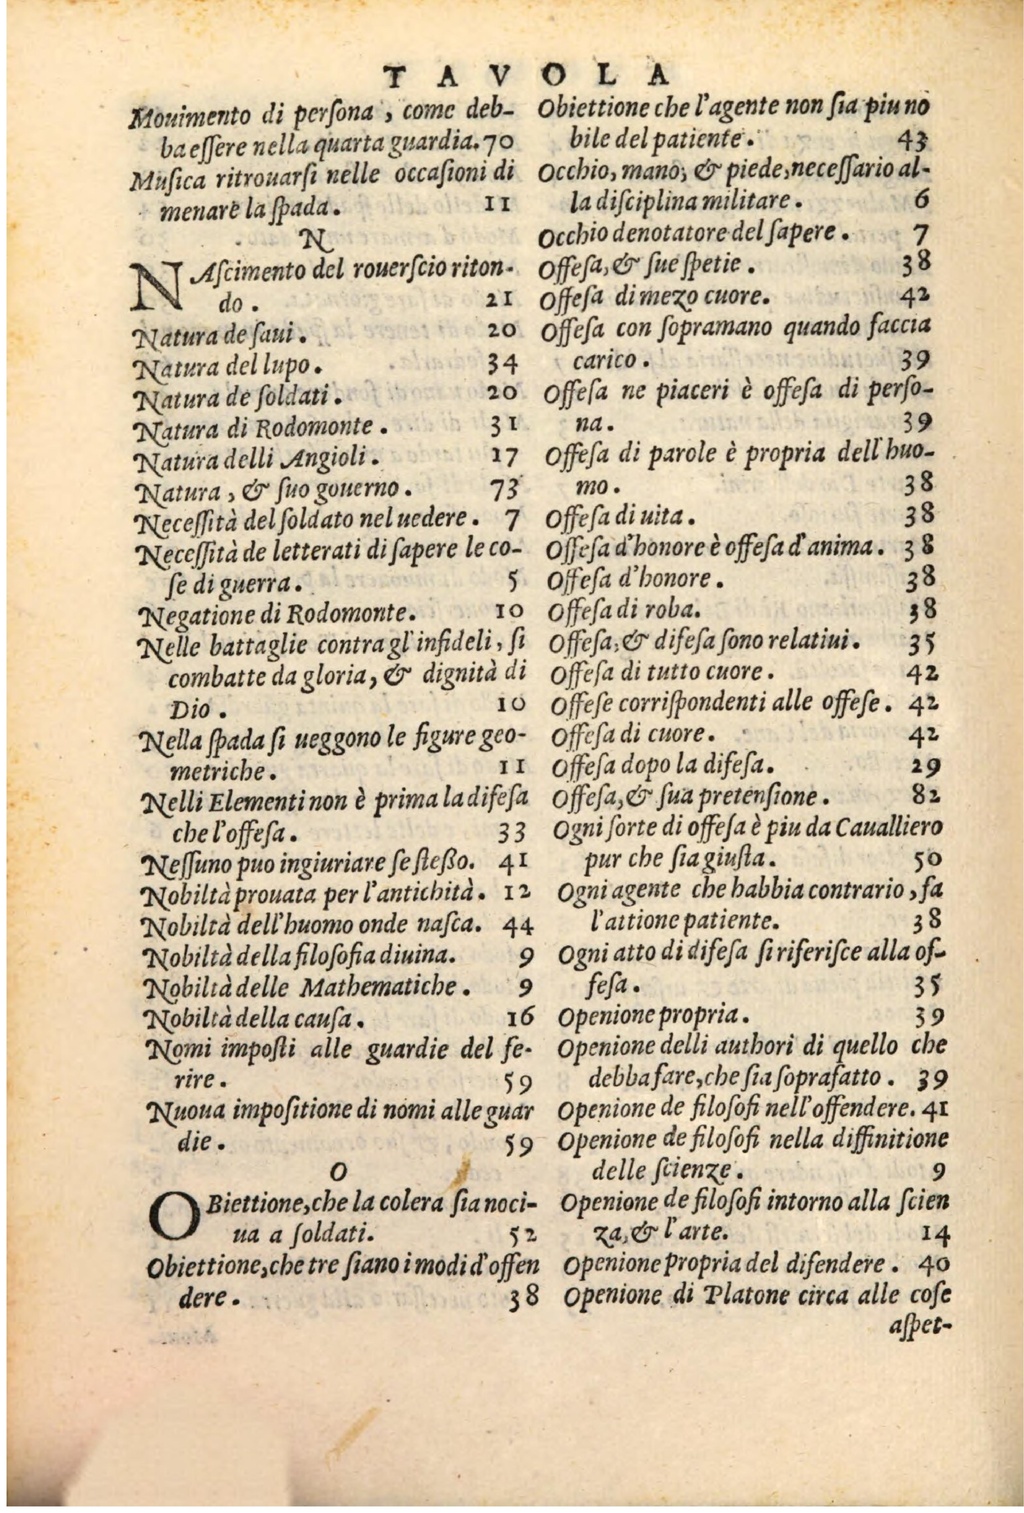 TAVOLA
Mouimento di perſona, come deb-
ba eſſere nella quarta guardia. 70
Muſica ritrouarſi nelle occaſioni di
menare la ſpada. 11
N
NAſcimento del rouerſcio riton-
do. 21
Natura de ſaui. 20
Natura del lupo. 34
Natura de ſoldati. 20
Natura di Rodomonte. 31
Natura delli Angioli. 17
Natura, & ſuo gouerno. 73
Neceſſità del ſoldato nel uedere. 7
Neceſſità de letterati di ſapere le co-
ſe di guerra. 5
Negatione di Rodomonte. 10
Nelle battaglie contra gl'infideli, ſi
combatte da gloria, & dignità di
Dio. 10
Nella ſpada ſi ueggono le figure geo-
metriche. 11
Nelli Elementi non è prima la difeſa
che l'offeſa. 33
Neſſuno puo ingiuriare ſe ſteßo. 41
Nobiltà prouata per l'antichità. 12
Nobiltà dell'huomo onde naſca. 44
Nobiltà della filoſofia diuina. 9
Nobiltà delle Mathematiche. 9
Nobiltà della cauſa. 16
Nomi impoſti alle guardie del fe-
rire. 59
Nuoua impoſitione di nomi alle guar
die. 59
O
OBiettione, che la colera ſia noci-
ua a ſoldati. 52
Obiettione, che tre ſiano i modi d'offen
dere. 38
Obiettione che l'agente non ſia piu no
bile del patiente. 43
Occhio, mano, & piede, neceſſario al-
la diſciplina militare. 6
Occhio denotatore del ſapere. 7
Offeſa, & ſue ſpetie. 38
Offeſa di mezo cuore. 42
Offeſa con ſopramano quando faccia
carico. 39
Offeſa ne piaceri è offeſa di perſo-
na. 39
Offeſa di parole è propria dell'huo-
mo. 38
Offeſa di uita. 38
Offeſa d'honore è offeſa d'anima. 38
Offeſa d'honore. 38
Offeſa di roba. 38
Offeſa, & difeſa ſono relatiui. 35
Offeſa di tutto cuore. 42
Offeſe corriſpondenti alle offeſe. 42
Offeſa di cuore. 42
Offeſa dopo la difeſa. 29
Offeſa, & ſua pretenſione. 82
Ogni ſorte di offeſa è piu da Caualliero
pur che ſia giuſta. 50
Ogni agente che habbia contrario, fa
l'attione patiente. 38
Ogni atto di difeſa ſi riferiſce alla of-
feſa. 35
Openione propria. 39
Openione delli authori di quello che
debba fare, che ſia ſoprafatto. 39
Openione de filoſofi nell'offendere. 41
Openione de filoſofi nella diffinitione
delle ſcienze. 9
Openione de filoſofi intorno alla ſcien
za, & l'arte. 14
Openione propria del difendere. 40
Openione di Platone circa alle coſe
aſpet-